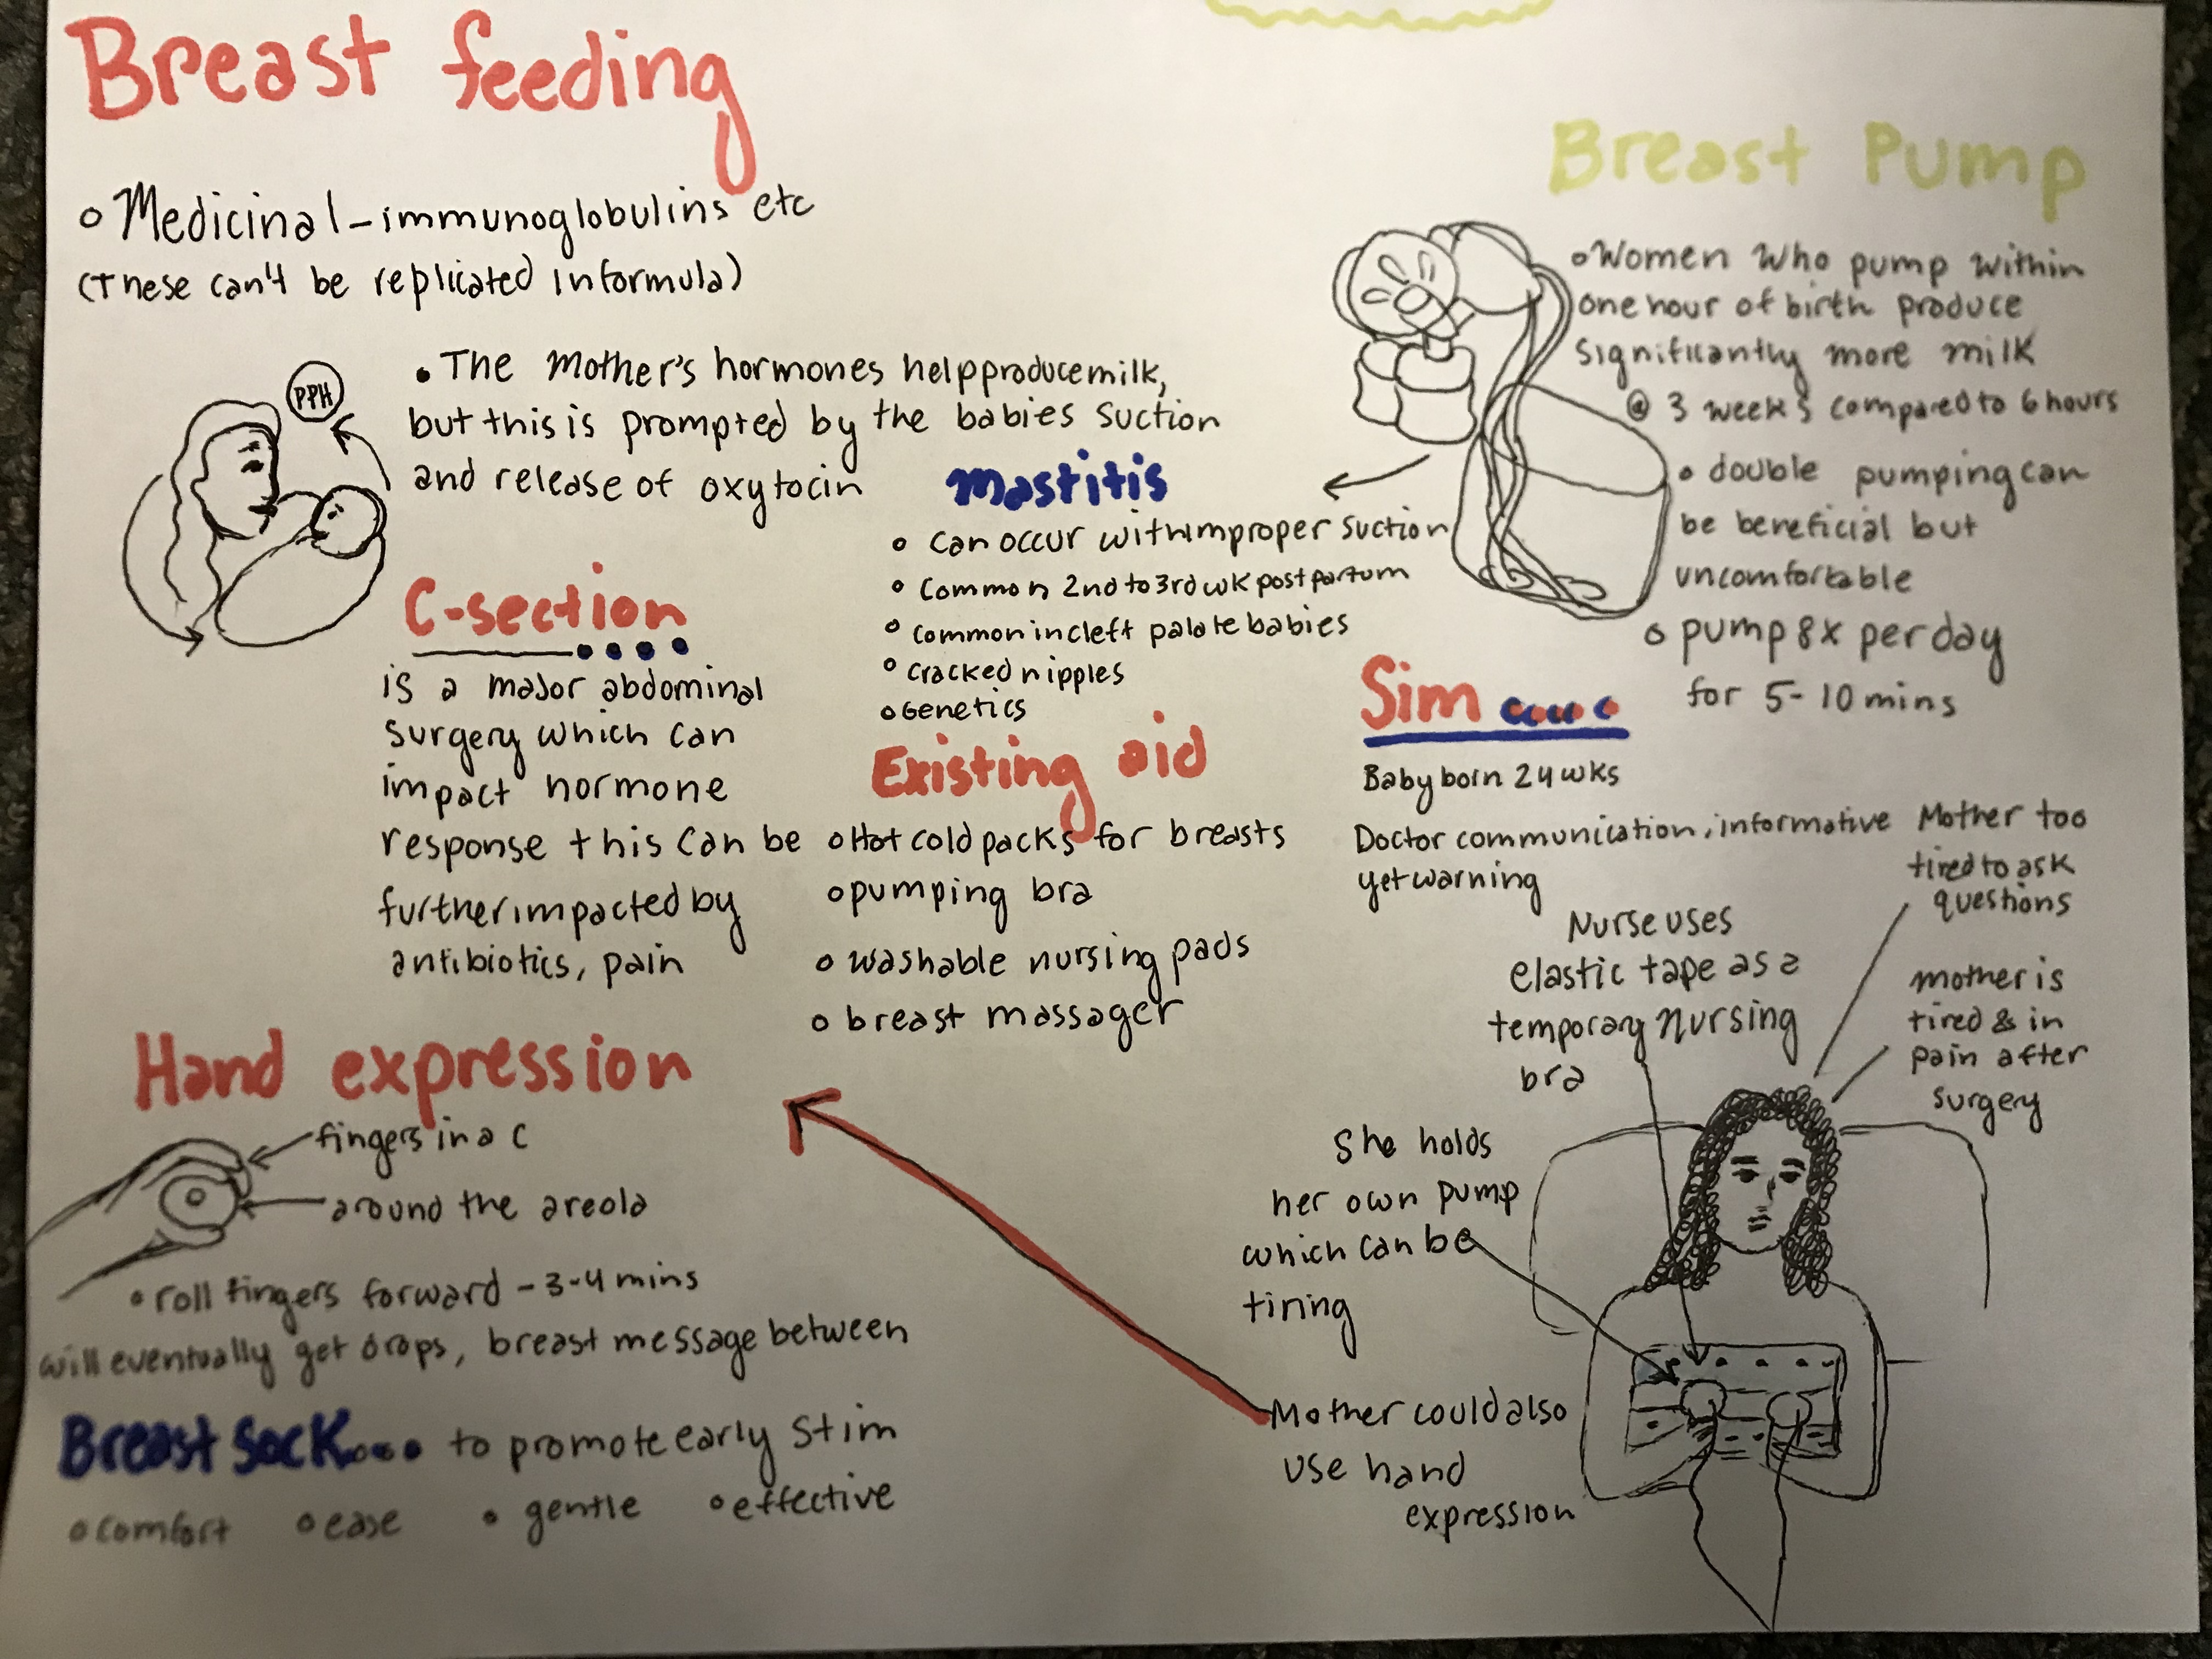 Breast feeding
Medicinal - immunoglobulins etc
(These can't be replicated in formula)
PPH
The Mother's hormones help produce milk,
but this is prompted by the babies suction
and release of oxytocin
C-section
is a major abdominal
surgery which can
impact hormone
response this can be
further impacted by
antibiotics, pain
Mastitis
can occur with improper suction
Common 2nd to 3rd wk post partum
common in cleft palate babies
cracked nipples
Genetics
Existing aid
Hot cold packs for breasts
pumping bra
washable nursing pads
breast massager
Breast Pump
Women who pump within
one hour of birth produce
significantly more milk
@ 3 weeks compared to 6 hours
double pumping can
be beneficial but
uncomfortable
pump 8x per day
for 5-10 mins
Sim
Baby born 24 wks
Doctor communication, informative
yet warning
Mother too
tired to ask
questions
Nurse uses
elastic tape as a
temporary nursing
bra
mother is
tired & in
pain after
surgery
She holds
her own pump
which can be
tiring
Mother could also
use hand
expression
Hand expression
fingers in a C
around the areola
roll fingers forward - 3-4 mins
will eventually get drops, breast message between
Breast Sock... to promote early stim
comfort ease gentle effective